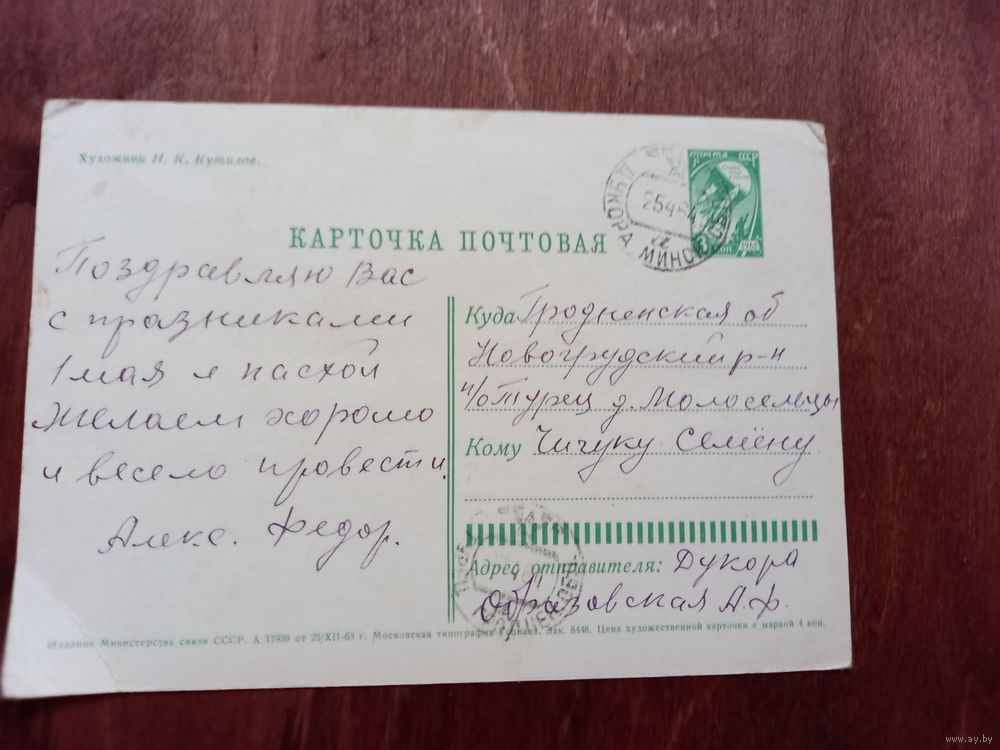 Художник И. К. Кутилов.
ПОЧТА СССР
1961
КАРТОЧКА ПОЧТОВАЯ
ДУКОРА МИНСК
25 4
Поздравляю Вас
с празниками
1 мая и пасхой
Желаем хорошо
и весело провести.
Алекс. Федор.
Куда Гродненская об
Новогрудский р-н
п/о Турец д. Молосельцы
Кому Чигуку Семёну
Адрес отправителя: Дукора
Образовская А.Ф.
Издание Министерства связи СССР. А 11939 от 25/XII-63 г. Московская типография Гознака. Зак. 8446. Цена художественной карточки с маркой 4 коп.
www.ay.by